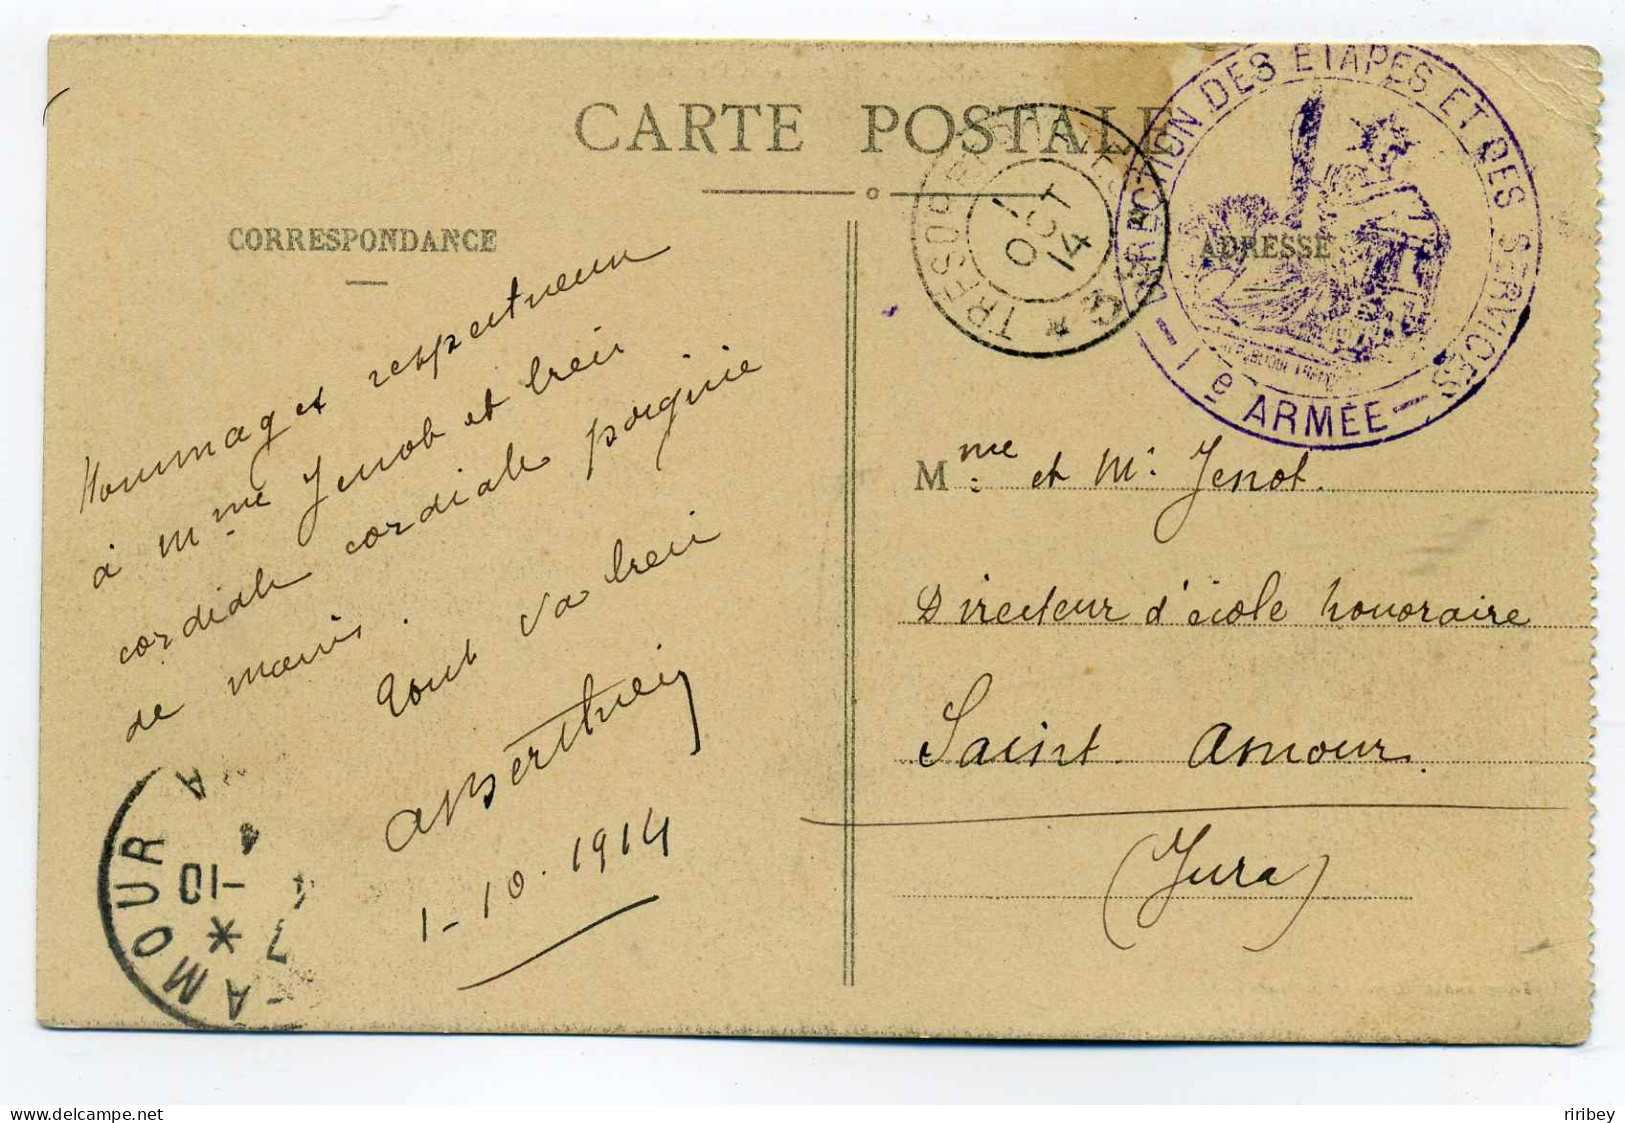 CARTE POSTALE
CORRESPONDANCE
ADRESSE
Hommages respectueux
à Mme Jenot et bien
cordiale cordiale poignée
de mains.
Tout va bien
1-10.1914
Mme et Mr Jenot.
Directeur d'école honoraire
Saint Amour.
(Jura)
TRESOR ET POSTES
1
OCT
14
DIRECTION DES ETAPES ET DES SERVICES
— 1e ARMÉE —
T AMOUR
7
-10
4
riribey